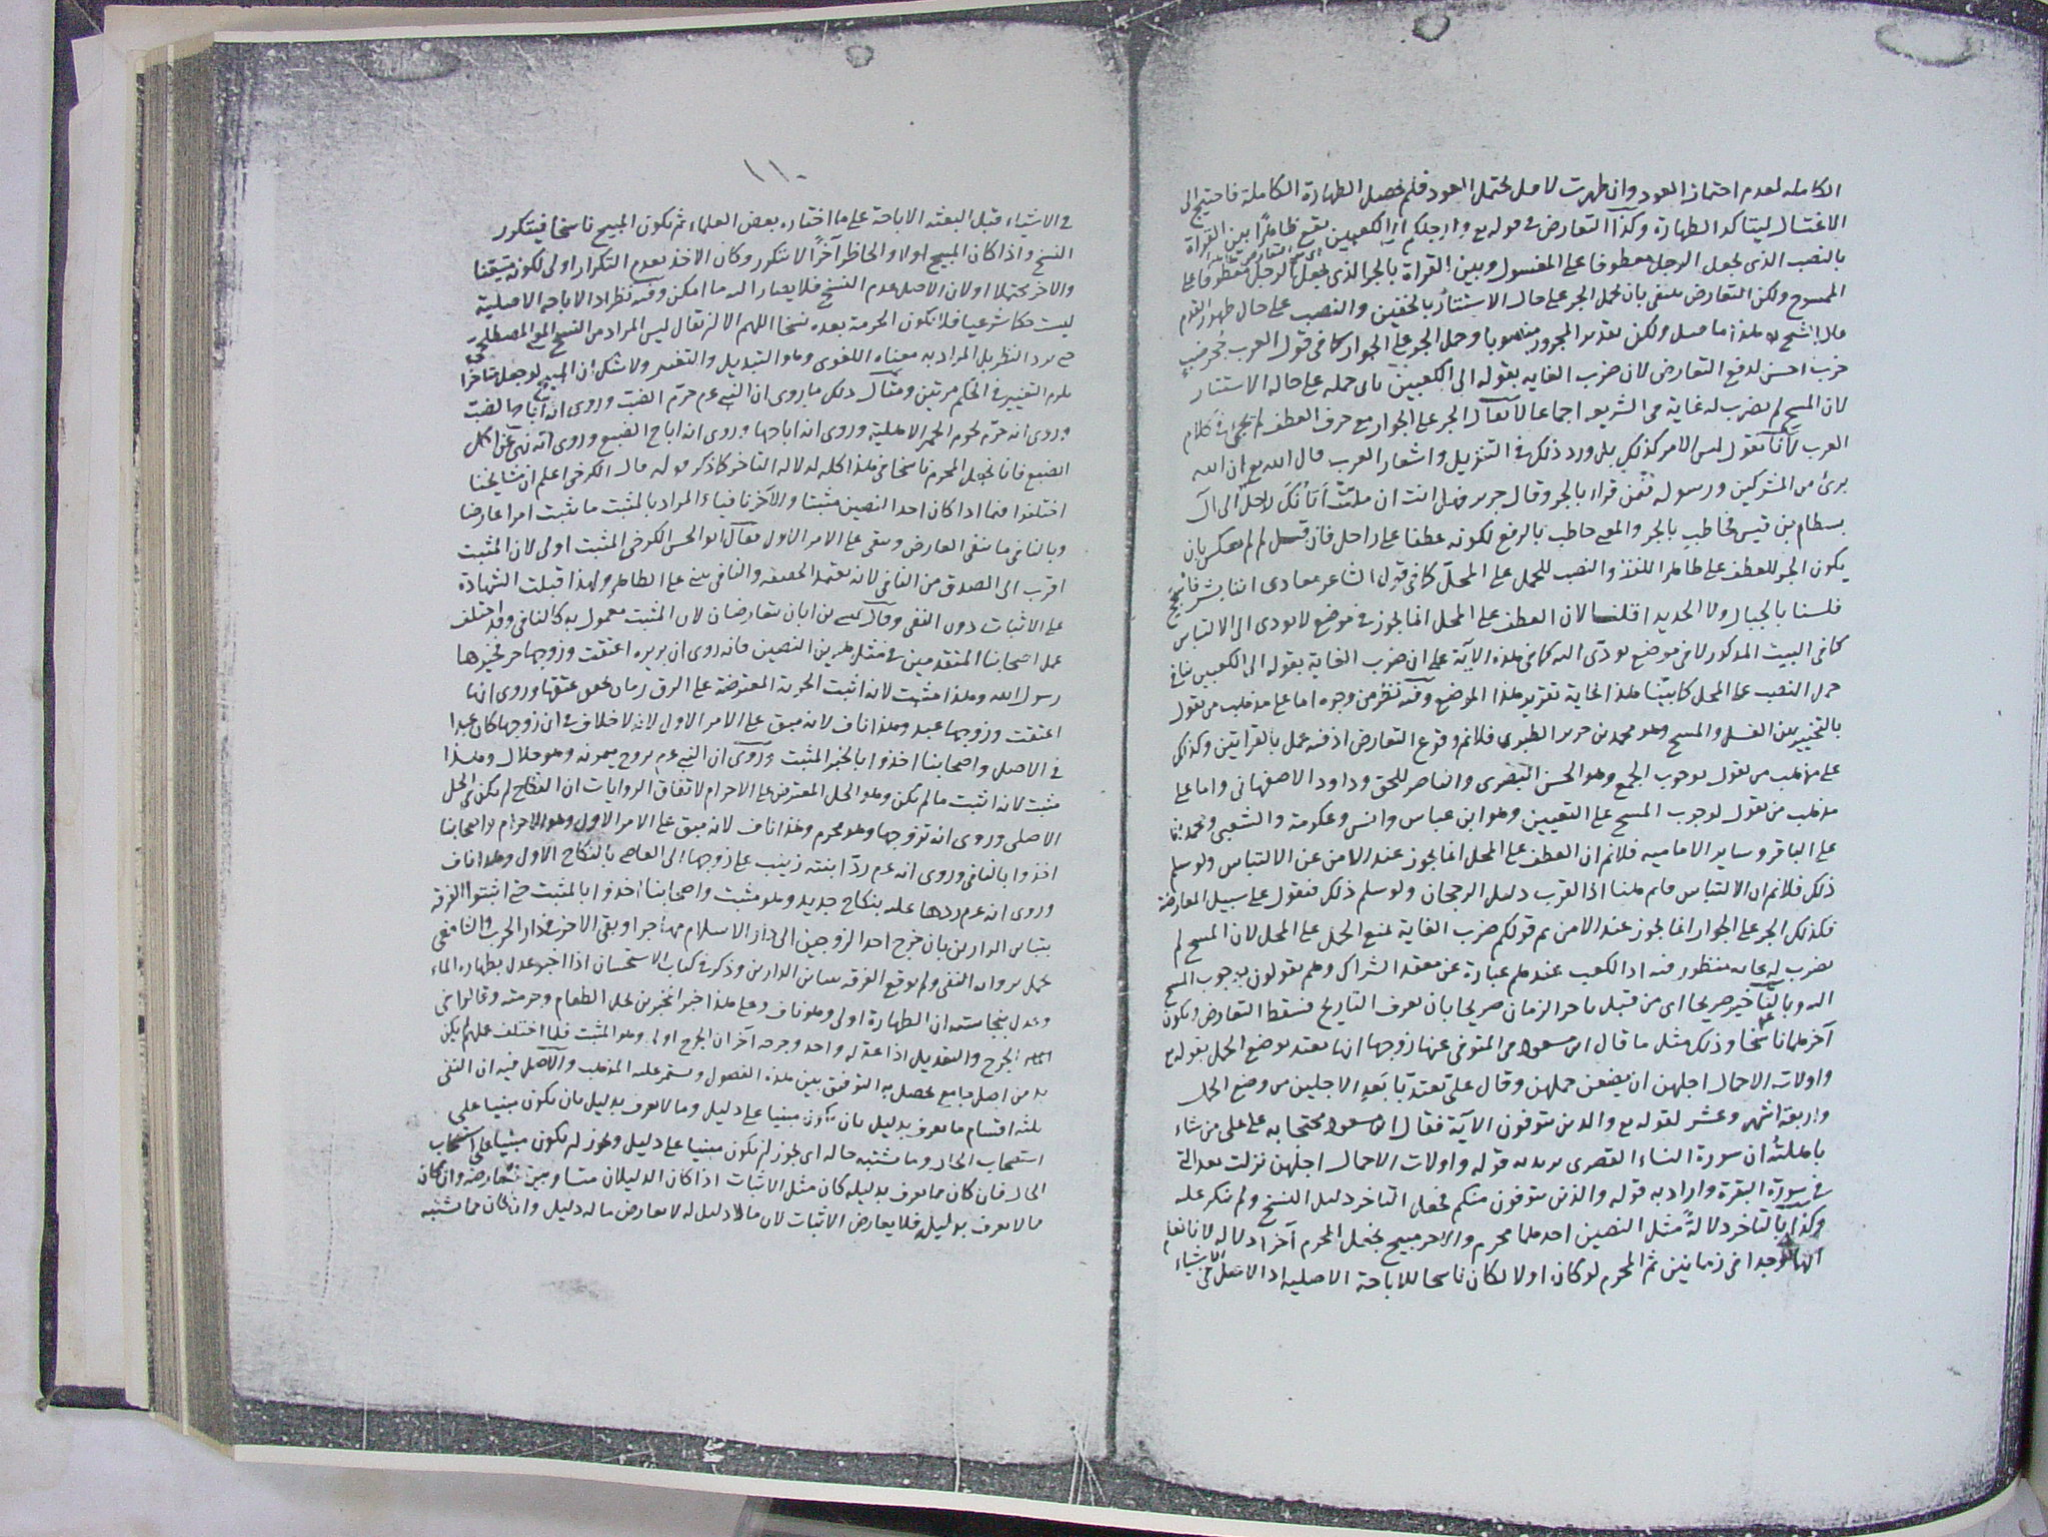 الكامله لعدم احتمال العود وان طهرت لاقل يحتمل العود فلم يحصل الطهارة الكاملة فاحتيج الى
الاغتسال ليتأكد الطهارة وكذا التعارض في قوله تع وارجلكم الى الكعبين يقع ظاهرًا بين القراة
بالنصب الذى يجعل الرجل معطوفا على المغسول وبين القراة بالجر الذى يجعل الرجل معطوفا على
الممسوح ولكن التعارض ينتفى بان يحمل الجر على حال الاستتار بالخفين والنصب على حال ظهور القدم
قال الشيخ هذا ما قيل ولكن تقدير المجرور منصوبا وحمل الجر على الجوار كما فى قول العرب جُحر ضبٍ
خربٍ احسن لدفع التعارض لان ضرب الغايه بقوله الى الكعبين يابى حمله على حالة الاستتار
لان المسح لم يضرب له غاية فى الشريعه اجماعا لا يقال الجر على الجوار مع حرف العطف لم يجى فى كلام
العرب لأنا نقول ليس الامر كذلك بل ورد ذلك فى التنزيل واشعار العرب قال الله تع ان الله
برئ من المشركين ورسوله فى من قراه بالجر وقال جرير فهل انت ان ماتت أتانُكَ راحل الى آل
بسطام بن قيس فخاطب بالجر والمعنى خاطب بالرفع لكونه عطفا على راحل فان قيل لم لم يعكس بان
يكون الجر للعطف على ظاهر اللفظ والنصب للحمل على المحل كما فى قول الشاعر معاوى اننا بشر فاسجح
فلسنا بالجبال ولا الحديدا قلنا لان العطف على المحل انما يجوز فى موضع لا يودى الى الالتباس
كما فى البيت المذكور لا فى موضع يودّى اليه كما فى هذه الآية على ان ضرب الغاية بقوله الى الكعبين ينافى
حمل النصب على المحل كما بيّنا هذا غاية تقرير هذا الموضع وفيه نظر من وجوه اما على مذهب من يقول
بالتخيير بين الغسل والمسح وهو محمد بن جرير الطبرى فلانم وقوع التعارض اذ فيه عمل بالقراتين وكذلك
على مذهب من يقول بوجوب الجمع وهو الحسن البصرى والناصر للحق وداود الاصفهانى واما على
مذهب من يقول لوجوب المسح على التعيين وهو ابن عباس وانس وعكرمة والشعبى ومحمد بن
على الباقر وساير الاماميه فلانم ان العطف على المحل انما يجوز عند الامن عن الالتباس ولو سلم
ذلك فلانم ان الالتباس قايم هنا اذ القرب دليل الرجحان ولو سلم ذلك فنقول على سبيل المعارضة
فكذلك الجر على الجوار انما يجوز عند الامن ثم قولكم ضرب الغاية يمنع الحمل على المحل لان المسح لم
يضرب له غايه منظور فيه اذ الكعب عندهم عبارة عن معقد الشراك وهم يقولون بوجوب المسح
اليه وبالتأخير صريحا اى من قبل تاخر الزمان صريحا بان يعرف التاريخ فسقط التعارض ويكون
آخرهما ناسخا وذلك مثل ما قال ابن مسعود فى المتوفى عنها زوجها انها تعتد بوضع الحمل بقوله تع
واولات الاحمال اجلهن ان يضعن حملهن وقال علىّ تعتدّ بابَعدِ الاجلين من وضع الحمل
واربعة اشهر وعشر لقوله تع والذين يتوفون الآية فقال ابن مسعود محتجا به على على من شاء
باهلته ان سورة النساء القصرى يريد به قوله واولات الاحمال اجلهن نزلت بعد التى
فى سورة البقرة واراد به قوله والذين يتوفون منكم فجعل التاخر دليل النسخ ولم ينكر عليه
وكذا بالتاخر دلالةً مثل النصين احدهما محرم والاخر مبيح بجعل المحرم آخرا دلالة لانا نعلم
انهما وجدا فى زمانين ثم المحرم لو كان اولا لكان ناسخا للاباحة الاصلية اذ الاصل فى الاشياء
١١٠
فى الاشياء قبل البعثة الاباحة على ما اختاره بعض العلماء ثم يكون المبيح ناسخا فيتكرر
النسخ واذا كان المبيح اولا والحاظر آخرًا لا يتكرر وكان الاخذ بعدم التكرار اولى لكونه متيقنا
والاخر محتملا اولان الاصل عدم النسخ فلا يصار اليه ما امكن وفيه نظر اذ الاباحة الاصلية
ليست حكما شرعيا فلا تكون الحرمة بعده نسخا اللهم الا ان يقال ليس المراد من النسخ المعنى المصطلح
حتى يرد النظر بل المراد به معناه اللغوى وهو التبديل والتغيير ولا شك ان المبيح لو جعل متاخرا
يلزم التغيير فى الحكم مرتين ومثال ذلك ما روى ان النبى عم حرّم الضبّ وروى انه اباح الضبّ
وروى انه حرّم لحوم الحمر الاهلية وروى انه اباحها وروى انه اباح الضبع وروى انه نهى عن اكل
الضبع فانا نجعل المحرم ناسخا فى هذا كله لدلالة التاخر كما ذكر قوله قال الكرخى اعلم ان مشايخنا
اختلفوا فيما اذا كان احد النصين مثبتا والآخر نافيا والمراد بالمثبت ما يثبت امرا عارضا
وبالنافى ما ينفى العارض ويبقى على الامر الاول فقال ابو الحسن الكرخى المثبت اولى لان المثبت
اقرب الى الصدق من النافى لانه يعتمد الحقيقه والنافى يبنى على الظاهر ولهذا قبلت الشهادة
على الاثبات دون النفى وقال عيسى بن ابان يتعارضان لان المثبت معمول به كالنافى وقد اختلف
عمل اصحابنا المتقدمين فى مثل هذين النصين فانه روى ان بريره اعتقت وزوجها حر فخيرها
رسول الله وهذا مثبت لانه اثبت الحرية المعترضة على الرق زمان تحقق عتقها وروى انها
اعتقت وزوجها عبد وهذا ناف لانه مبق على الامر الاول لانه لا خلاف فى ان زوجها كان عبدا
فى الاصل واصحابنا اخذوا بالخبر المثبت وروى ان النبى عم تزوج ميمونه وهو حلال وهذا
مثبت لانه اثبت ما لم يكن وهو الحل المعترض على الاحرام لاتفاق الروايات ان النكاح لم يكن فى الحل
الاصلى وروى انه تزوجها وهو محرم وهذا ناف لانه مبق على الامر الاول وهو الاحرام واصحابنا
اخذوا بالنافى وروى انه عم ردّ ابنته زينب على زوجها ابى العاص بالنكاح الاول وهذا ناف
وروى انه عم ردها عليه بنكاح جديد وهو مثبت واصحابنا اخذوا بالمثبت حتى اثبتوا الفرقة
بتباين الدارين بان خرج احد الزوجين الى دار الاسلام مهاجرا وبقى الاخر فى دار الحرب والشافعى
عمل برواية النفى ولم يوقع الفرقه بتباين الدارين وذكر فى كتاب الاستحسان اذا اخبر عدل بطهارة الماء
وعدل بنجاسته ان الطهارة اولى وهو ناف وعلى هذا خبر المخبرين بحل الطعام وحرمته وقالوا فى
الجرح والتعديل اذا عدّله واحد وجرحه آخر ان الجرح اولى وهو المثبت فلما اختلف عملهم لم يكن
بد من اصل جامع يحصل به التوفيق بين هذه الفصول ويستمر عليه المذهب والاصل فيه ان النفى
ثلثه اقسام ما يعرف بدليل بان يكون مبنيا على دليل وما لا يعرف بدليل بان يكون مبنيا على
استصحاب الحال وما يشتبه حاله اى يجوز ان يكون مبنيا على دليل ويجوز ان يكون مبنيا على استصحاب
الحال فان كان مما يعرف بدليله كان مثل الاثبات اذا كان الدليلان متساويين فتعارضه وان كان
ما لا يعرف بدليله فلا يعارض الاثبات لان ما لا دليل له لا يعارض ما له دليل وان كان مما يشتبه